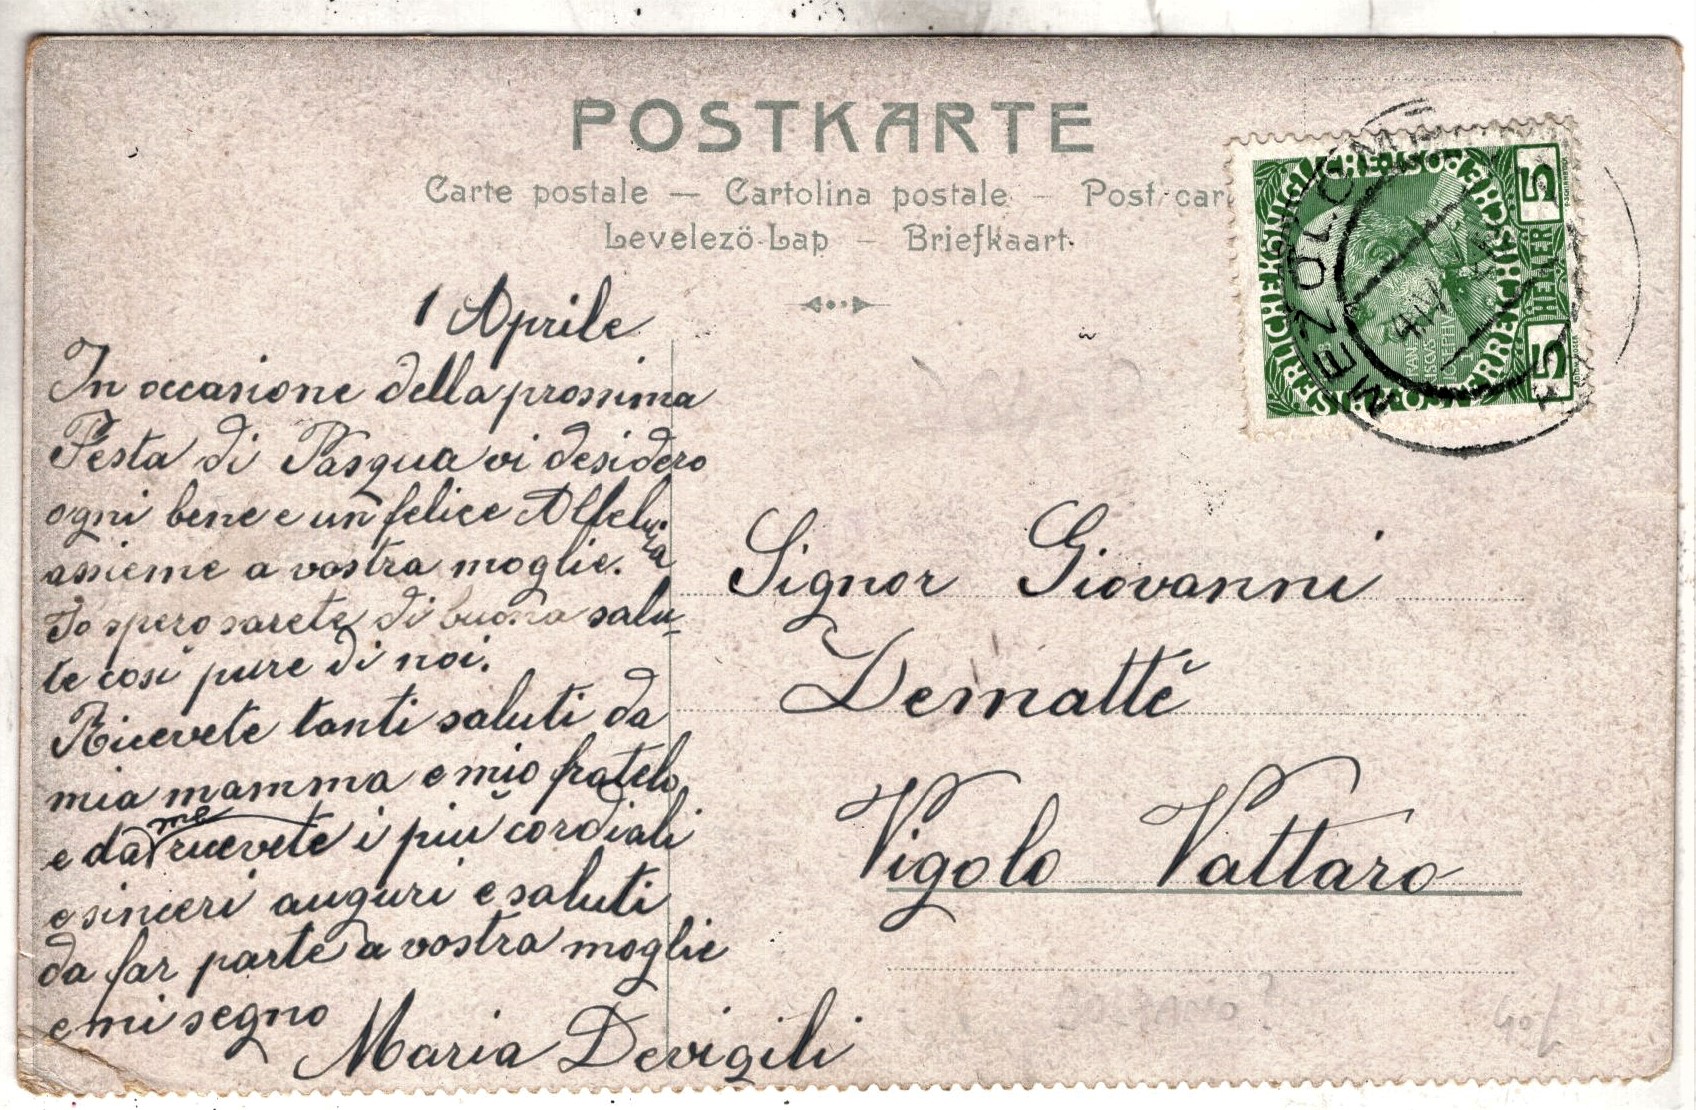 POSTKARTE
Carte postale — Cartolina postale — Post-car
Levelező-Lap — Briefkaart
1 Aprile
In occasione della prossima
Festa di Pasqua vi desidero
ogni bene e un felice Allelu
ia
assieme a vostra moglie.
Io spero sarete di buona salu-
te così pure di noi.
Ricevete tanti saluti da
mia mamma e mio fratelo
me
e da ricevete i più cordiali
e sinceri auguri e saluti
da far parte a vostra moglie
e mi segno
Maria Devigili
Signor Giovanni
Demattè
Vigolo Vattaro
5 HELLER 5
MEZOLOM